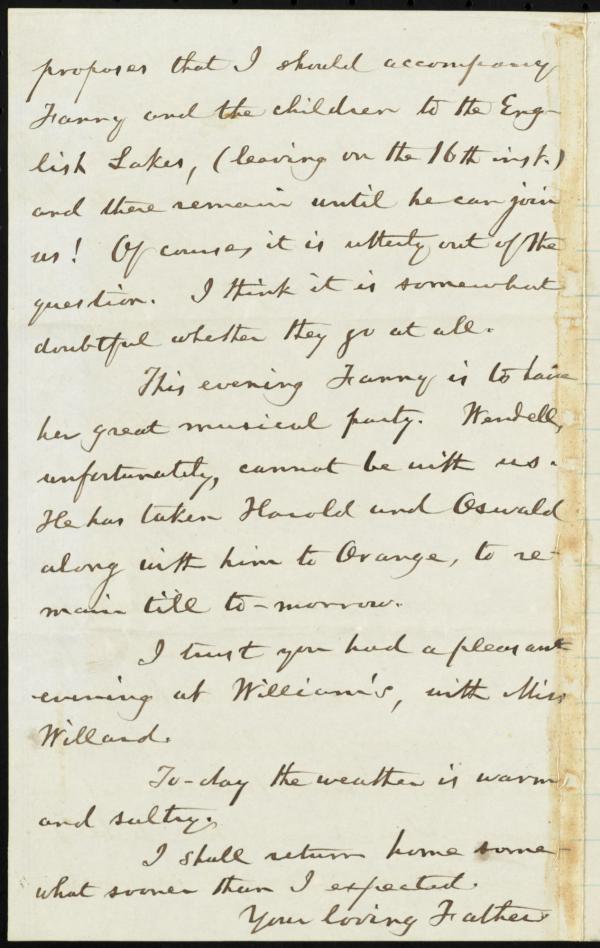 proposes that I should accompany
Fanny and the children to the Eng-
lish Lakes, (leaving on the 16th inst.)
and there remain until he can join
us! Of course, it is utterly out of the
question. I think it is somewhat
doubtful whether they go at all.
This evening Fanny is to have
her great musical party. Wendell,
unfortunately, cannot be with us.
He has taken Harold and Oswald
along with him to Orange, to re-
main till to-morrow.
I trust you had a pleasant
evening at William's, with Miss
Willard.
To-day the weather is warm
and sultry.
I shall return home some-
what sooner than I expected.
Your loving Father